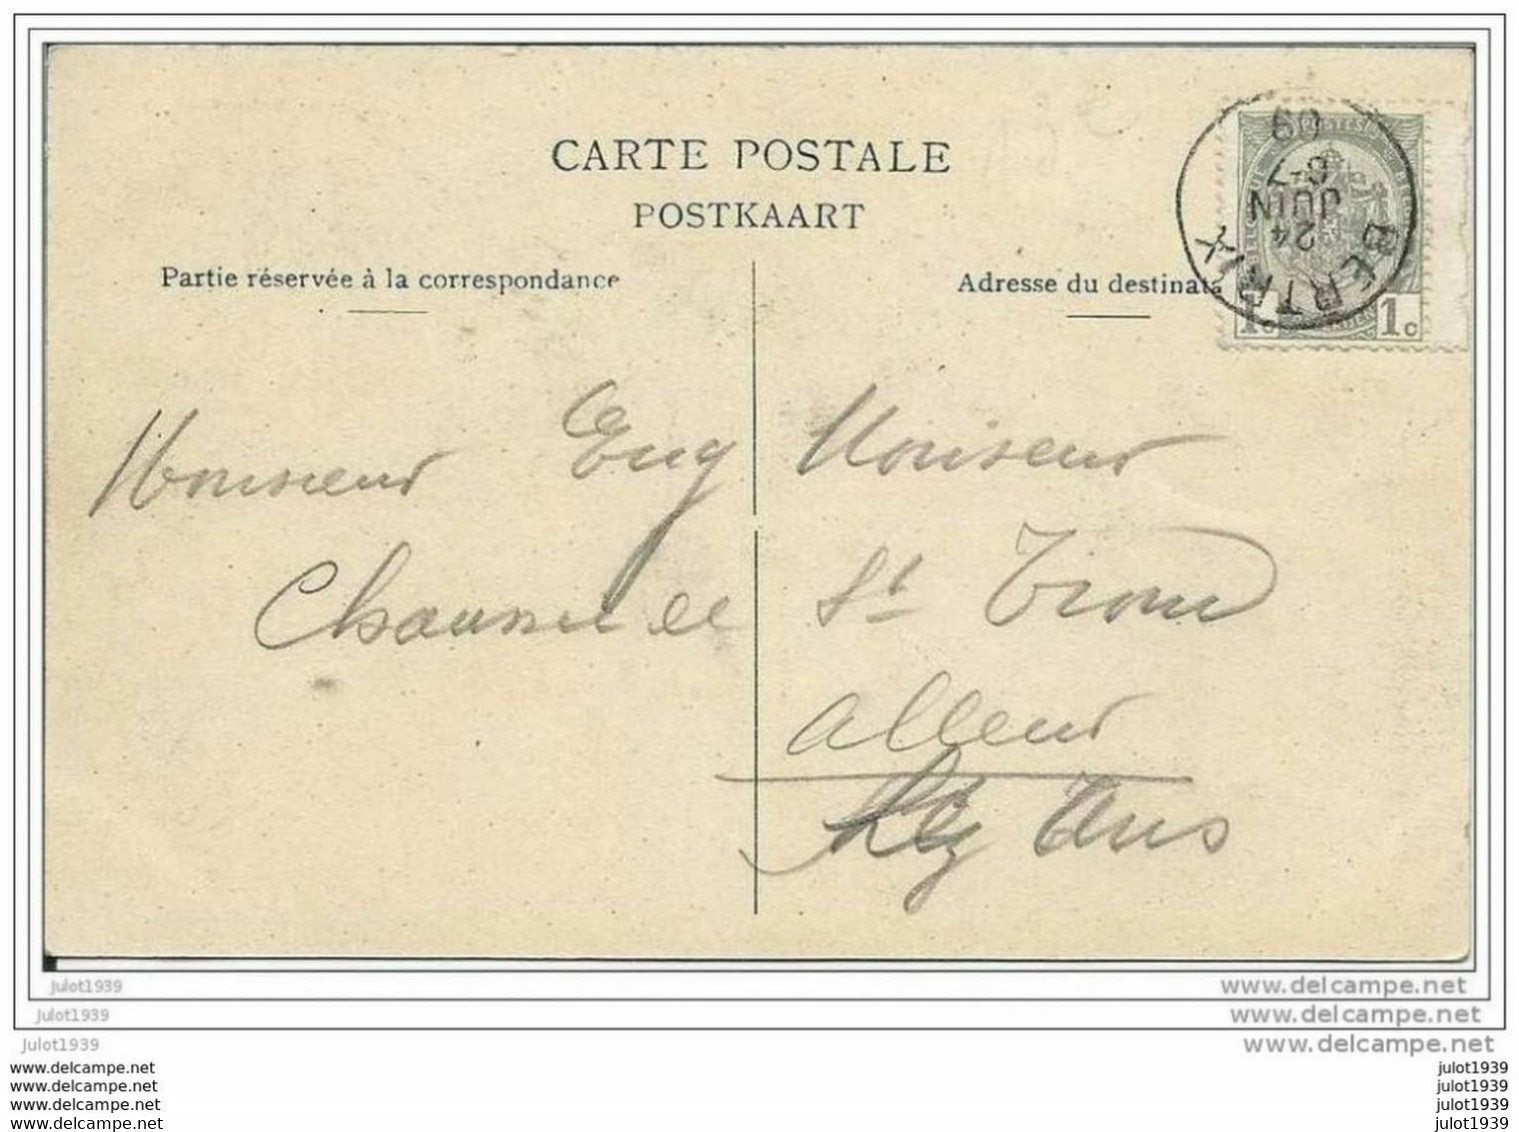 CARTE POSTALE
POSTKAART
Partie réservée à la correspondance
Adresse du destinata
BERTRIX
24
JUIN
8-7
09
1c 1c
Monsieur Eug Moniseur
Chaussee St Trond
Alleur
Ans
julot1939
www.delcampe.net
julot1939
www.delcampe.net
julot1939
www.delcampe.net
www.delcampe.net
julot1939
www.delcampe.net
julot1939
www.delcampe.net
julot1939
www.delcampe.net
julot1939